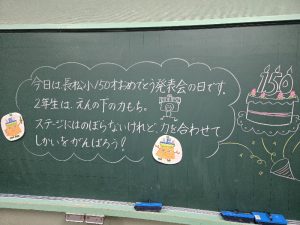 今日は長松小150才おめでとう発表会の日です。
2年生は、えんの下の力もち。
ステージにはのぼらないけれど、力を合わせて
しかいをがんばろう!
150